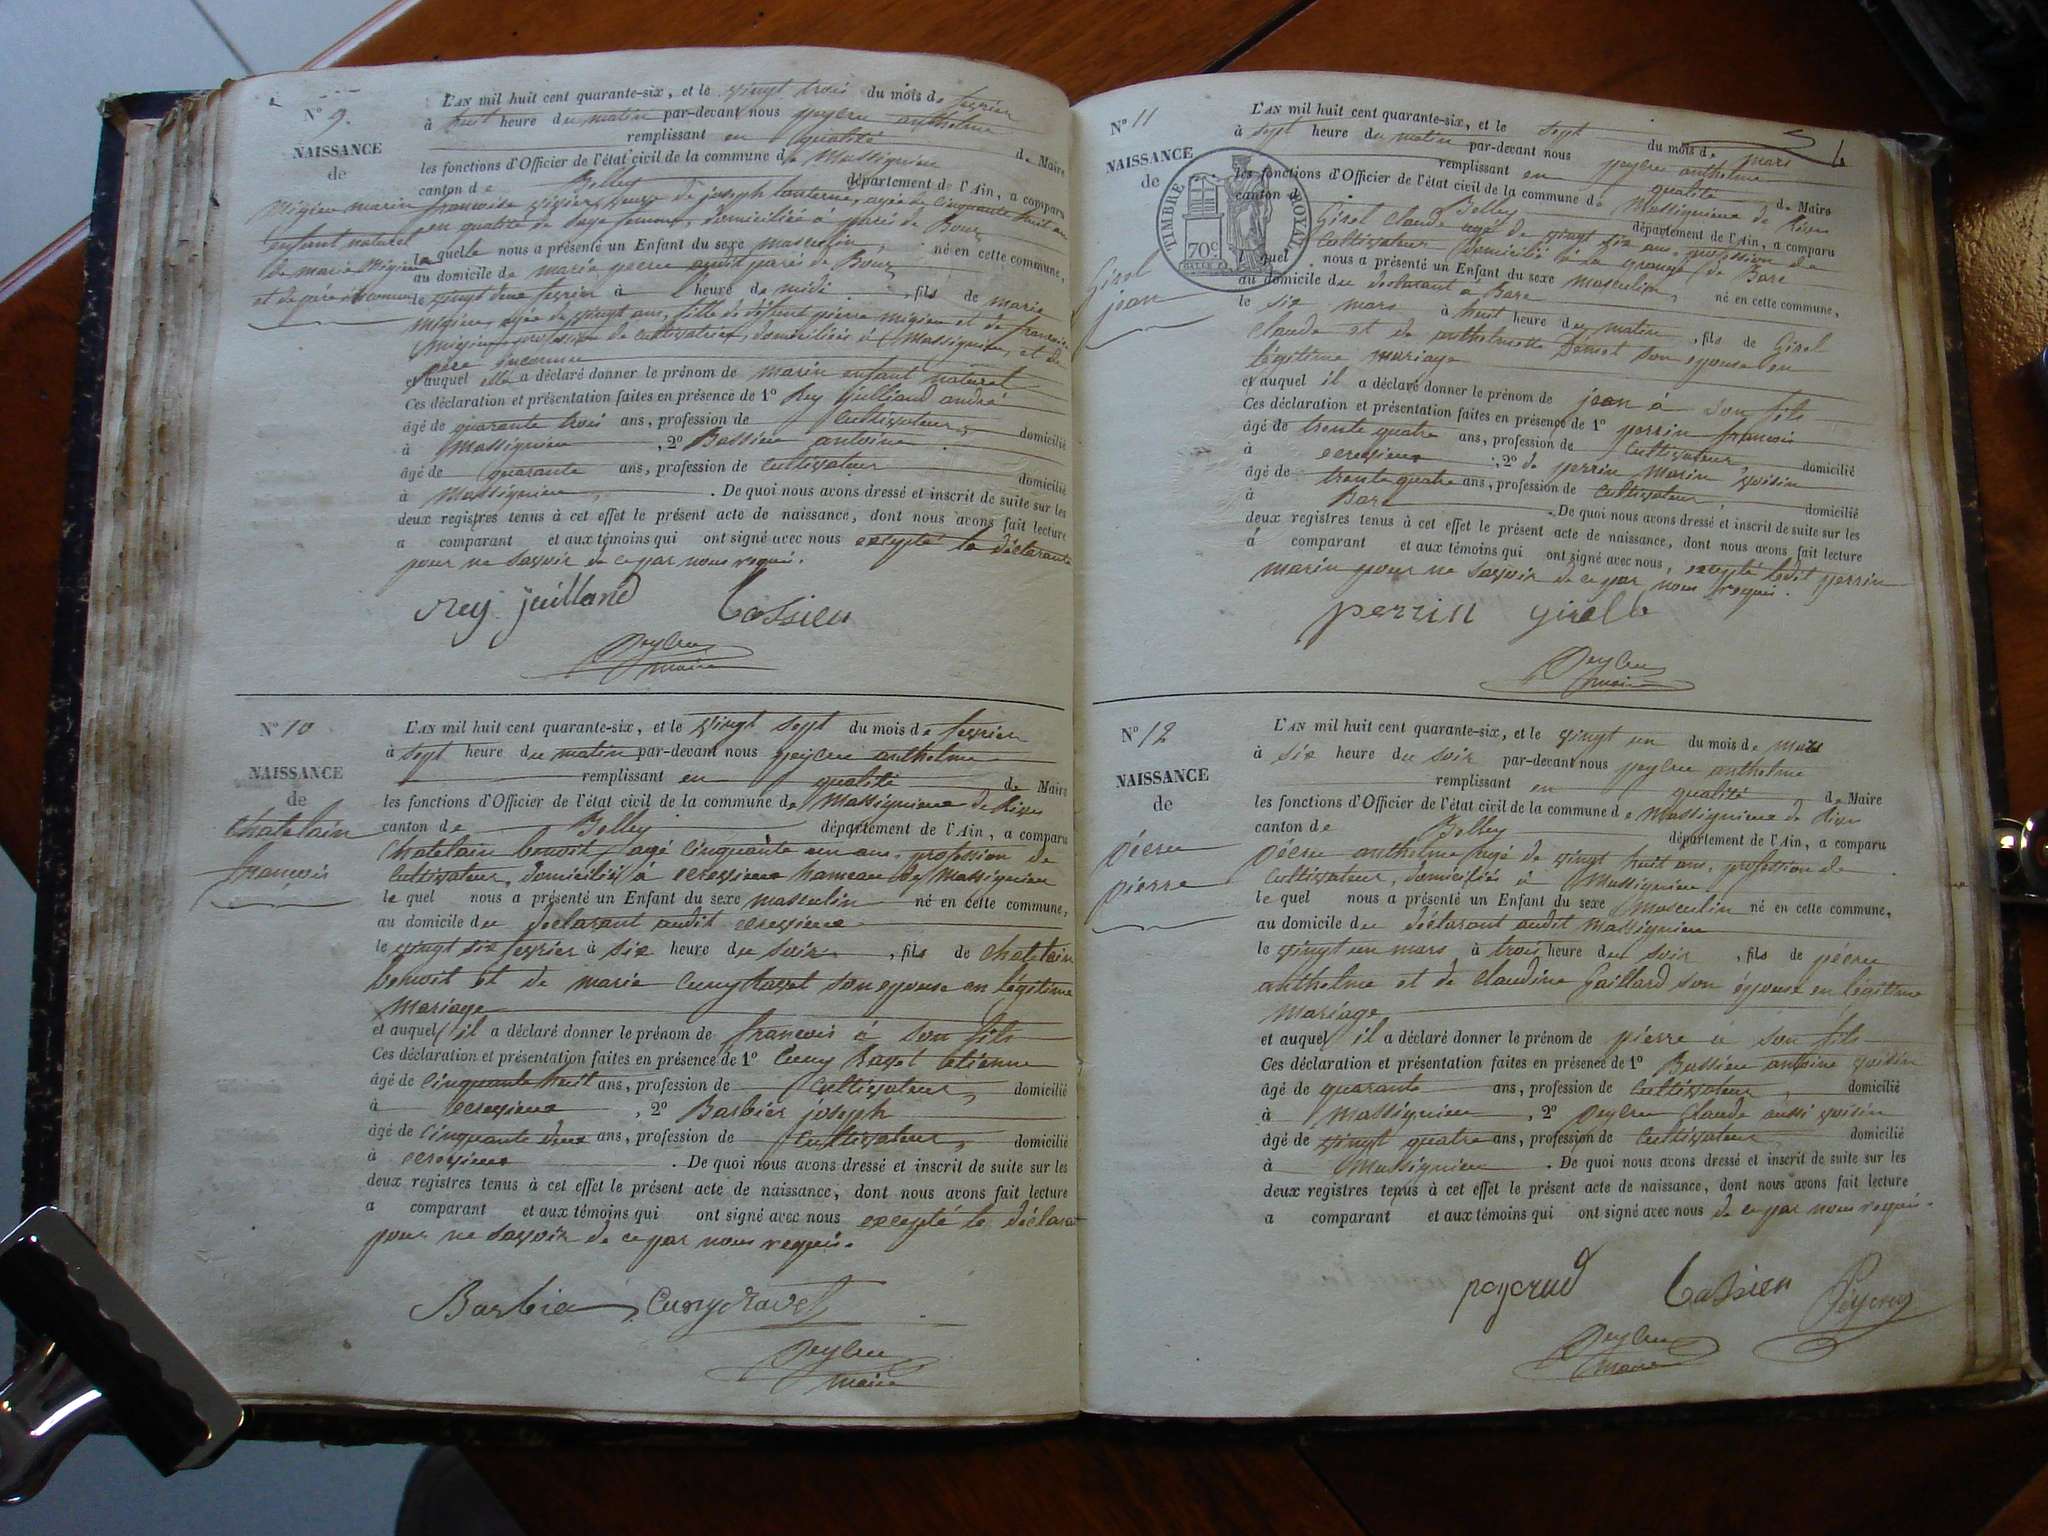 N° 9.
NAISSANCE
de
Migieu marin
enfant naturel
de marie Migieu
et de père inconnu
L'AN mil huit cent quarante-six, et le vingt trois du mois de fevrier
à huit heure du matin par-devant nous peyleu anthelme
remplissant en qualité de Maire
les fonctions d'Officier de l'état civil de la commune de Massignieu
canton de Belley département de l'Ain, a comparu
francoise veuve de joseph lanterne, agée de cinquante huit ans
en qualité de sage femme, domiciliée à parés de Bour
la quelle nous a présenté un Enfant du sexe masculin, né en cette commune,
au domicile de marie audit parés de Bour
le vingt deux fevrier à heure de midi, fils de marie
migieu, agée de vingt ans, fille de défunt pierre migieu et de francoise
profession de cultivatrice, domiciliées à Massignieu, et de
père inconnu
et auquel elle a déclaré donner le prénom de marin enfant naturel
Ces déclaration et présentation faites en présence de 1° Rey Juilland andré
âgé de quarante trois ans, profession de Cultivateur, domicilié
à Massignieu, 2° Bassieu antoine
âgé de quarante ans, profession de cultivateur domicilié
à Massignieu. De quoi nous avons dressé et inscrit de suite sur les
deux registres tenus à cet effet le présent acte de naissance, dont nous avons fait lecture
a comparant et aux témoins qui ont signé avec nous excepté la déclarante
pour ne savoir de ce par nous requis.
Rey juilland bassieu
Peyleu
maire
N° 10
NAISSANCE
de
Chatelain
francois
L'AN mil huit cent quarante-six, et le vingt sept du mois de fevrier
à sept heure du matin par-devant nous peyleu anthelme
remplissant en qualité de Maire
les fonctions d'Officier de l'état civil de la commune de Massignieu de Rives
canton de Belley département de l'Ain, a comparu
Chatelain benoit, agé cinquante un ans, profession de
cultivateur, domicilié à ecressieux hameau de Massignieu
le quel nous a présenté un Enfant du sexe masculin né en cette commune,
au domicile du déclarant audit ecressieux
le vingt six fevrier à six heure du soir, fils de chatelain
benoit et de marie Cuny ravet son epouse en légitime
mariage
et auquel il a déclaré donner le prénom de francois à son fils
Ces déclaration et présentation faites en présence de 1° Cuny Ravet etienne
âgé de cinquante huit ans, profession de Cultivateur, domicilié
à ecressieux, 2° Barbier joseph
âgé de cinquante deux ans, profession de Cultivateur, domicilié
à ecressieux. De quoi nous avons dressé et inscrit de suite sur les
deux registres tenus à cet effet le présent acte de naissance, dont nous avons fait lecture
a comparant et aux témoins qui ont signé avec nous excepté le déclarant
pour ne savoir de ce par nous requis.
Barbier Cunyravet
Peyleu
maire
N° 11
NAISSANCE
de
TIMBRE ROYAL
70 c.
Girel
jean
L'AN mil huit cent quarante-six, et le sept du mois de mars
à sept heure du matin par-devant nous peyleu anthelme
remplissant en qualité de Maire
les fonctions d'Officier de l'état civil de la commune de Massignieu de Rives
canton de Belley département de l'Ain, a comparu
Girel claude agé de vingt six ans, profession de
cultivateur domicilié à la grange de Bare
le quel nous a présenté un Enfant du sexe masculin, né en cette commune,
au domicile du déclarant à Bare
le six mars à huit heure du matin, fils de Girel
claude et de anthelmette son epouse en
légitime mariage
et auquel il a déclaré donner le prénom de jean à son fils
Ces déclaration et présentation faites en présence de 1° perrin francois
âgé de trente quatre ans, profession de Cultivateur domicilié
à ecressieux, 2° de perrin marin voisin
âgé de trente quatre ans, profession de Cultivateur domicilié
à Bare. De quoi nous avons dressé et inscrit de suite sur les
deux registres tenus à cet effet le présent acte de naissance, dont nous avons fait lecture
à comparant et aux témoins qui ont signé avec nous, excepté ledit perrin
marin pour ne savoir de ce par nous requis.
perrin
Peyleu
maire
N° 12
NAISSANCE
de
Pécru
pierre
L'AN mil huit cent quarante-six, et le vingt un du mois de mars
à six heure du soir par-devant nous peyleu anthelme
remplissant en qualité de Maire
les fonctions d'Officier de l'état civil de la commune de Massignieu de Rives
canton de Belley département de l'Ain, a comparu
Pécru anthelme agé de vingt huit ans, profession de
cultivateur, domicilié à Massignieu
le quel nous a présenté un Enfant du sexe masculin né en cette commune,
au domicile du déclarant audit Massignieu
le vingt un mars à trois heure du soir, fils de pécru
anthelme et de claudine Gaillard son épouse en légitime
mariage
et auquel il a déclaré donner le prénom de pierre à son fils
Ces déclaration et présentation faites en présence de 1° Bassieu antoine voisin
âgé de quarante ans, profession de Cultivateur, domicilié
à Massignieu, 2° peyleu claude aussi voisin
âgé de vingt quatre ans, profession de Cultivateur domicilié
à Massignieu. De quoi nous avons dressé et inscrit de suite sur les
deux registres tenus à cet effet le présent acte de naissance, dont nous avons fait lecture
a comparant et aux témoins qui ont signé avec nous de ce par nous requis.
peycrud bassieu
Peyleu
maire